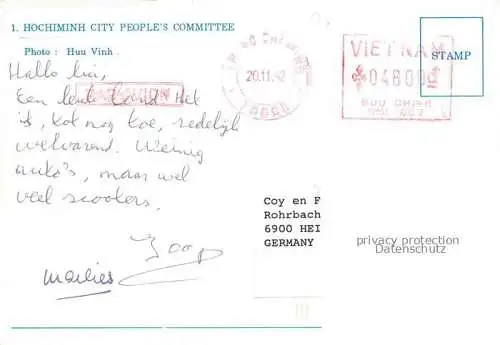 1. HOCHIMINH CITY PEOPLE'S COMMITTEE
Photo : Huu Vinh .
Hallo lui,
Een leuke land Het
is, tot nog toe, redelijk
welvarend. Weinig
auto's, maar wel
veel scooters.
Joop
Marlies
20.11.92
VIETNAM
04800đ
BUU CHINH
STAMP
Coy en F
Rohrbach
6900 HEI
GERMANY
privacy protection
Datenschutz